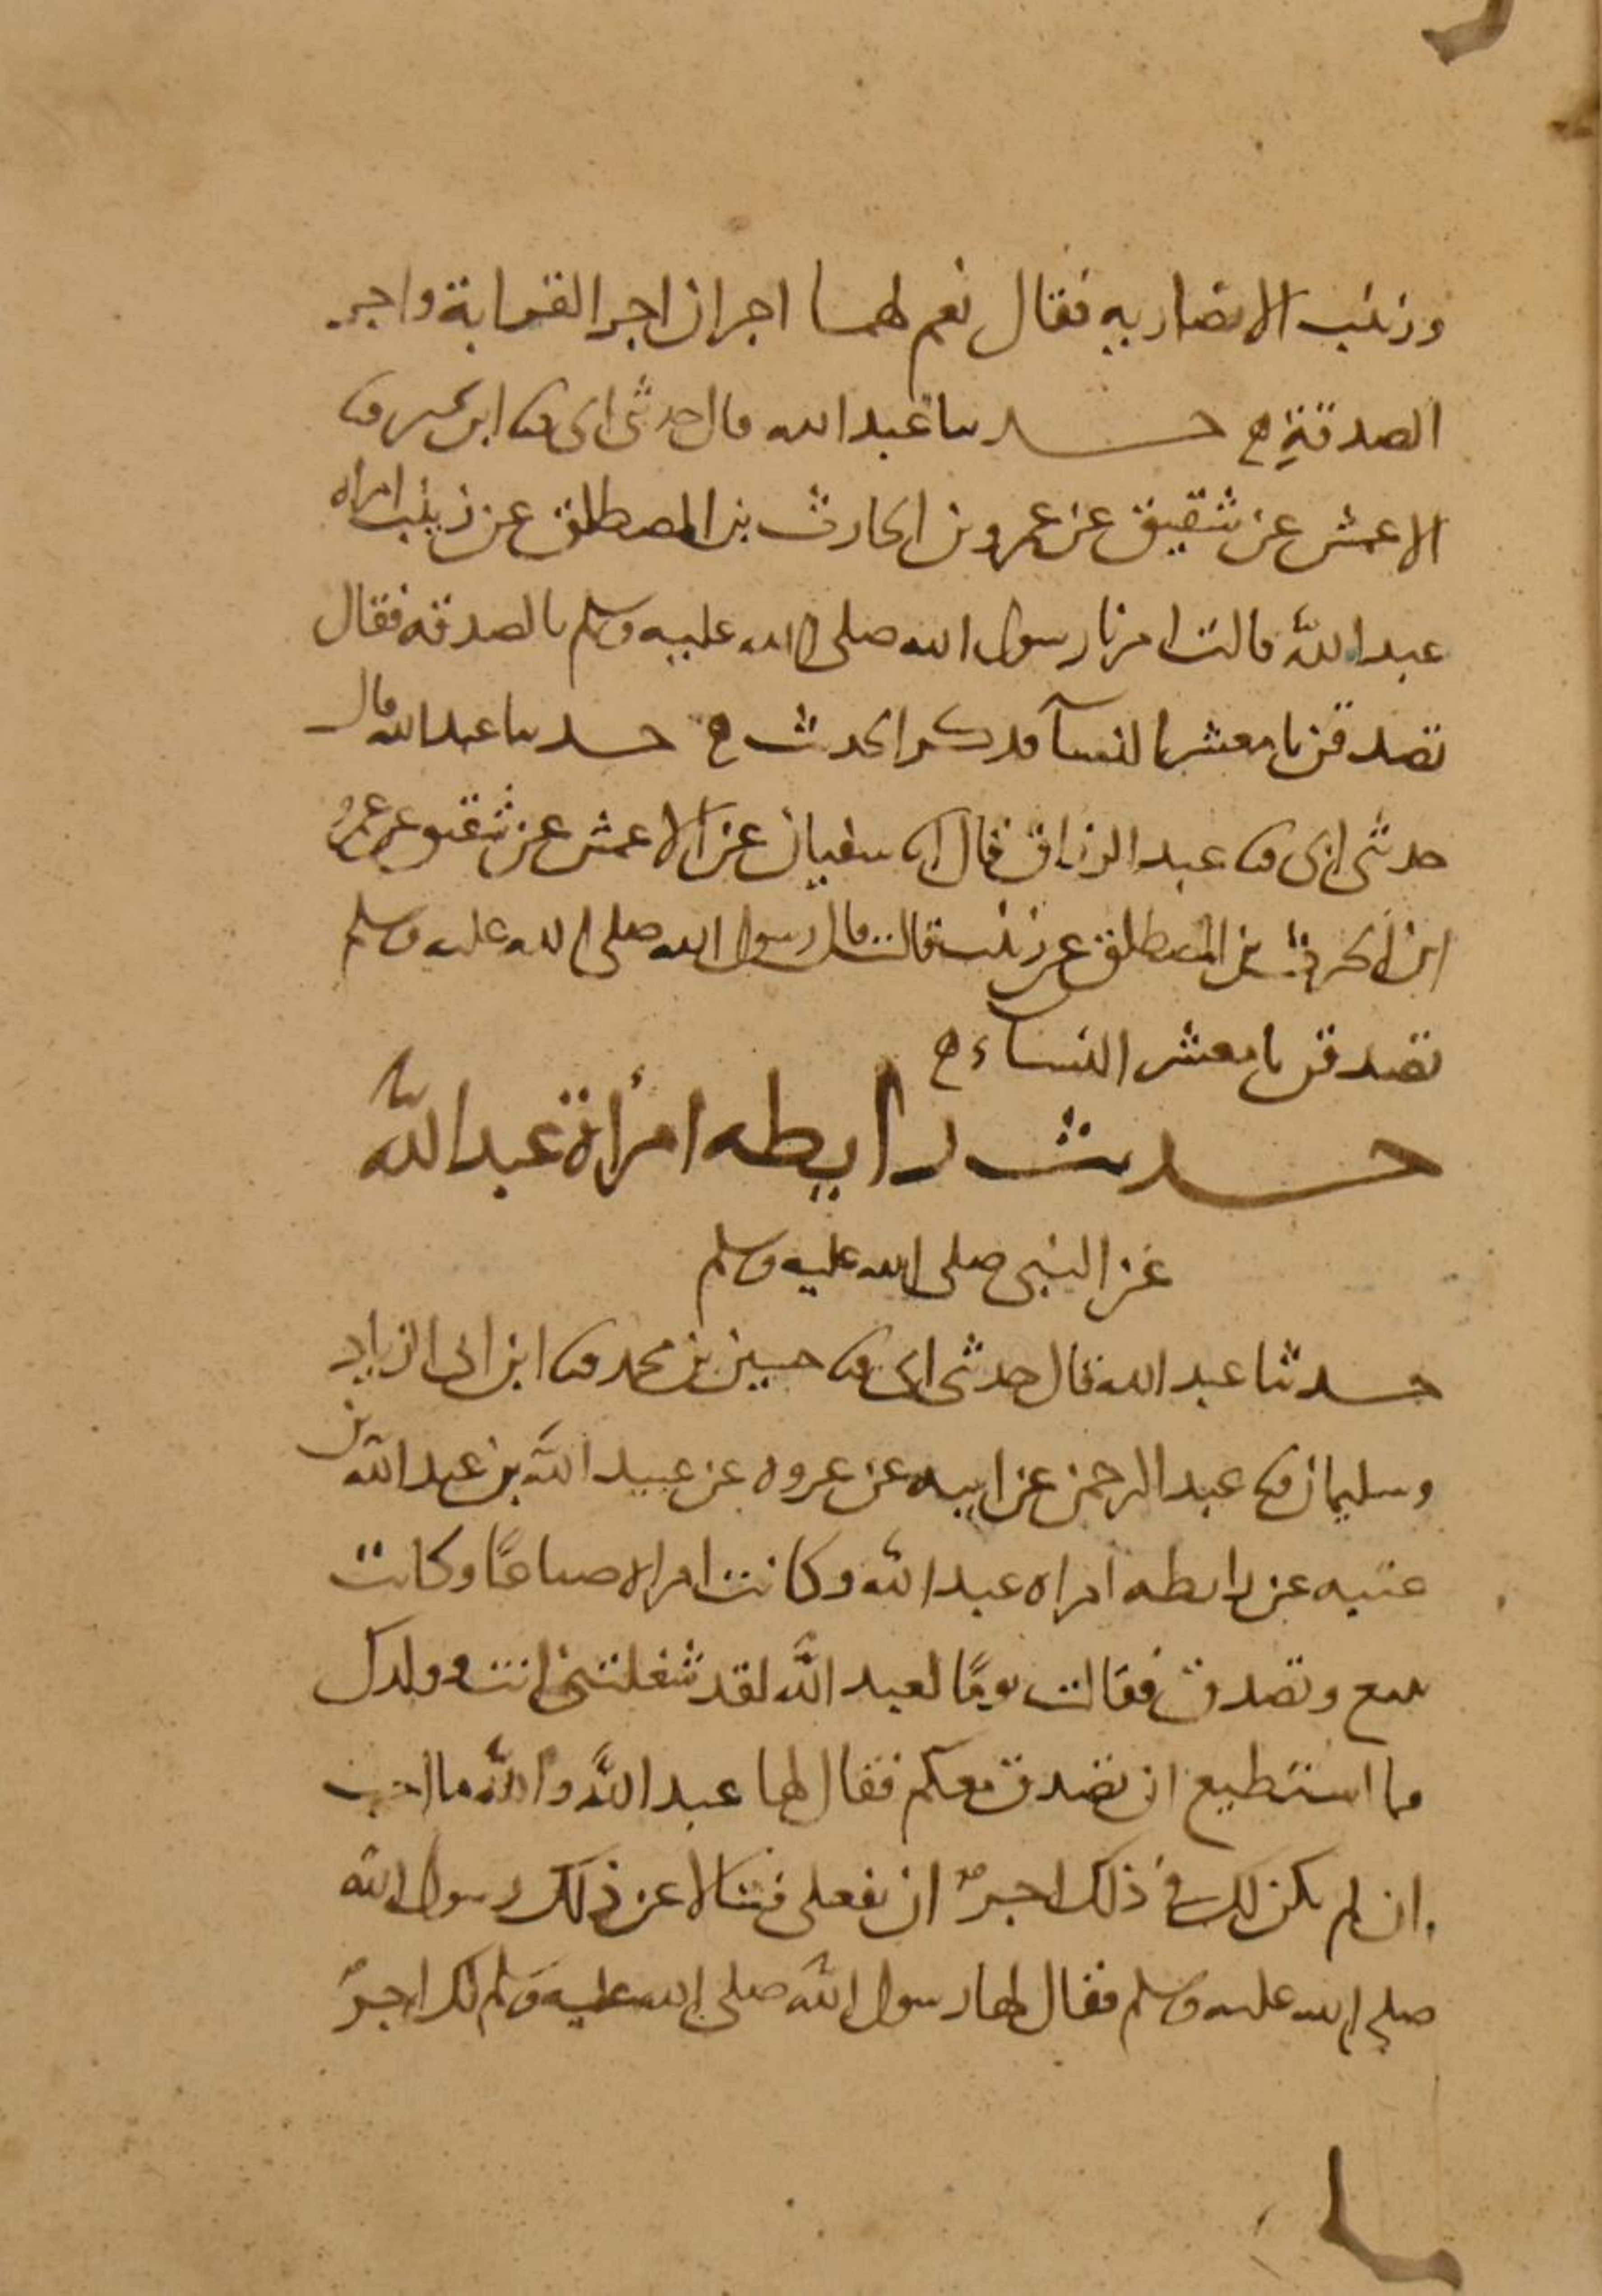 وزينب الانصاريه فقال نعم لهما اجران اجر القرابة واجر
الصدقة ح حدثنا عبد الله قال حدثني ابي ثنا ابن نمير ثنا
الاعمش عن شقيق عن عمرو بن الحارث بن المصطلق عن زينب امراه
عبد الله قالت امرنا رسول الله صلى الله عليه وسلم بالصدقه فقال
تصدقن يا معشر النسآ فذكر الحديث ح حدثنا عبد الله قال
حدثني ابي ثنا عبد الرزاق قال انا سفيان عن الاعمش عن شقيق عن عمرو
ابن الحرث بن المصطلق عن زينب قالت قال رسول الله صلى الله عليه وسلم
تصدقن يا معشر النساء ح
حديث رايطه امرأة عبد الله
عن النبي صلى الله عليه وسلم
حدثنا عبد الله قال حدثني ابي ثنا حسين بن محمد ثنا ابن ابي الزناد
وسليمان ثنا عبد الرحمن عن ابيه عن عروه عن عبيد الله بن عبد الله بن
عتبه عن رايطه امراه عبد الله وكانت امراه صناعًا وكانت
تبيع وتصدق فقالت يومًا لعبد الله لقد شغلتني انت وولدك
فما استطيع ان تصدق معكم فقال لها عبد الله والله ما احب
ان لم يكن لك في ذلك اجرٌ ان تفعلي فتسالا عن ذلك رسول الله
صلى الله عليه وسلم فقال لها رسول الله صلى الله عليه وسلم لك اجرٌ